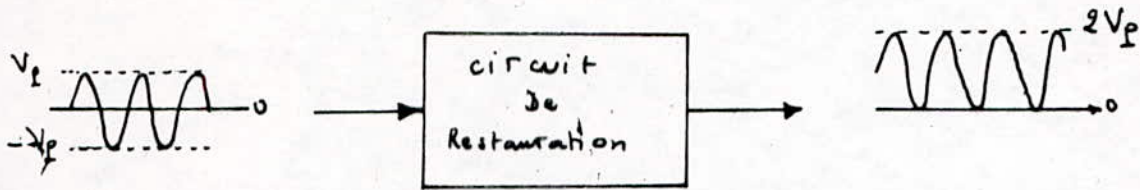 Vp
0
-Vp
circuit
De
Restauration
2Vp
0